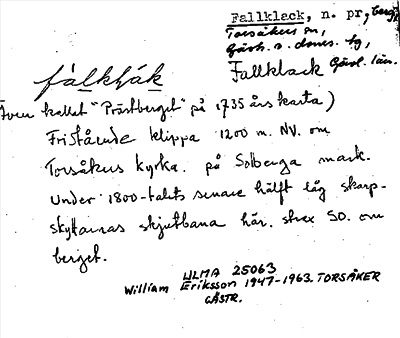 Fallklack, n. pr, berg,
Torsåkers sn,
Gästr. ö. doms. tg,
Fallklack Gävl. län.
fálkḷák
(även kallat "Prästberget" på 1735 års karta)
Fristående klippa 1200 m. NV. om
Torsåkers kyrka. på Solberga mark.
Under 1800-talets senare hälft låg skarp-
skyttarnas skjutbana här. strax SO. om
berget.
ULMA 25063
William Eriksson 1947-1963. TORSÅKER
GÄSTR.